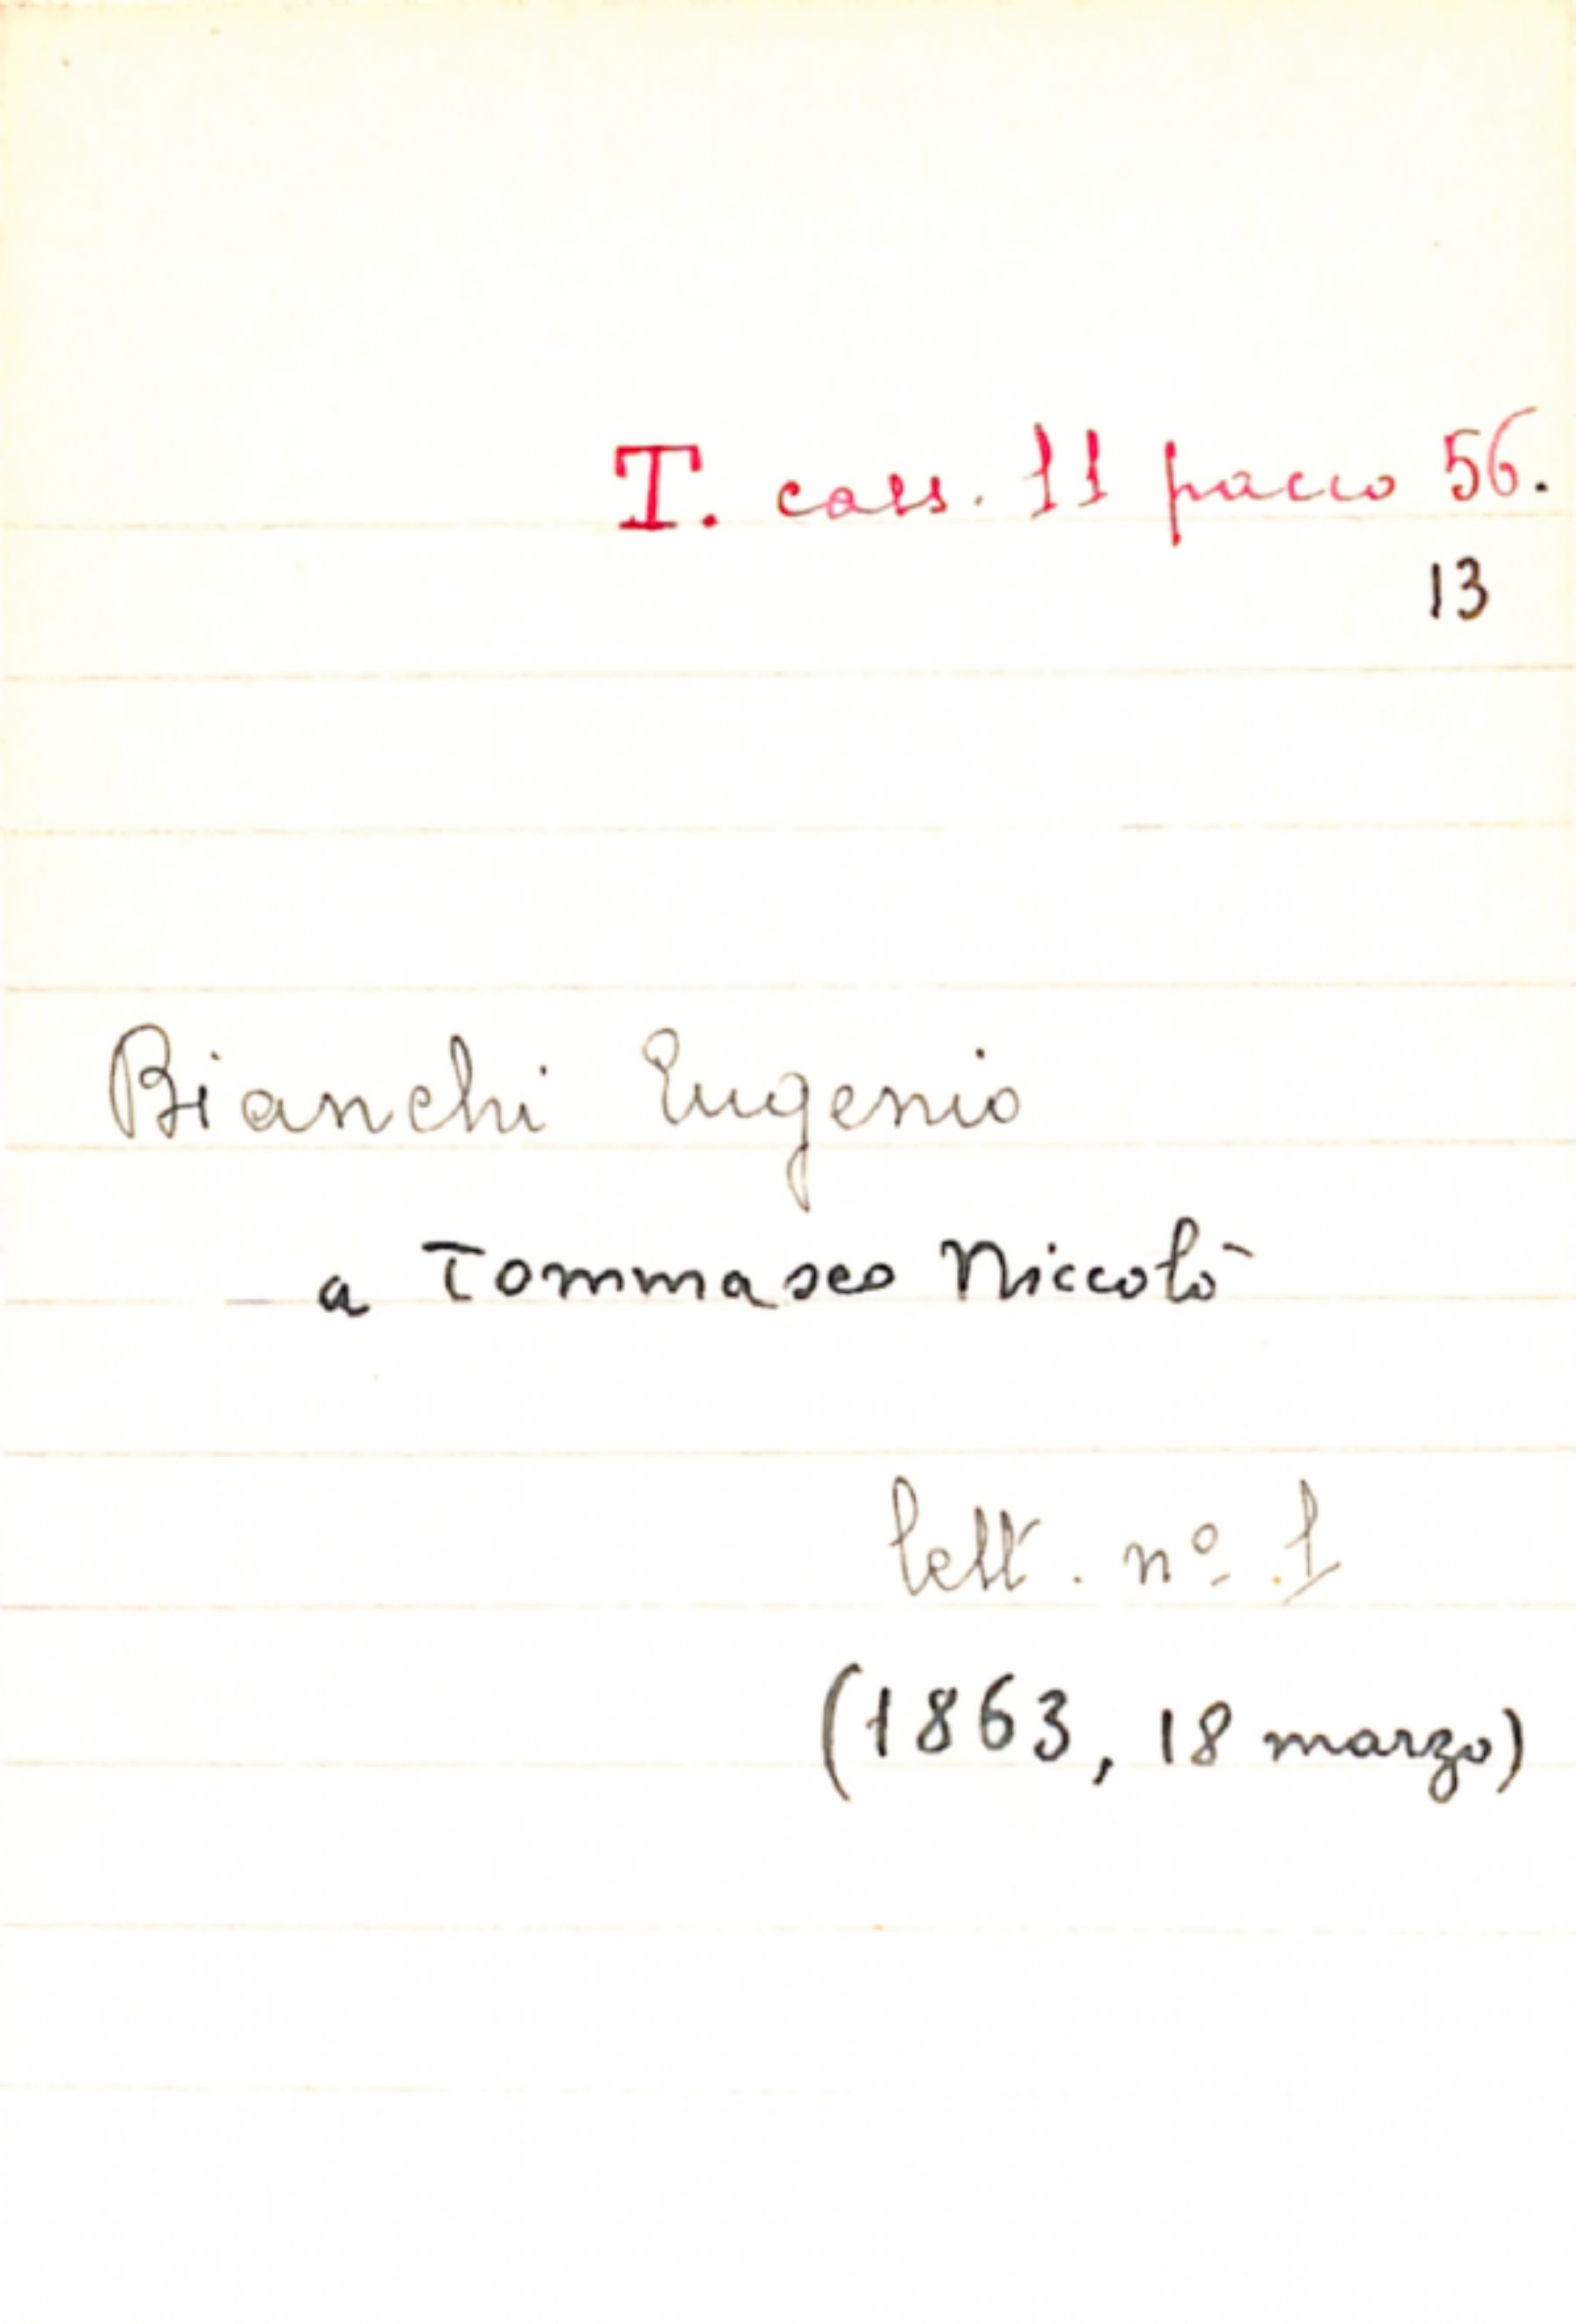 T. cass. 11 pacco 56.
13
Bianchi Eugenio
a Tommaseo Niccolò
lett. nº 1
(1863, 18 marzo)